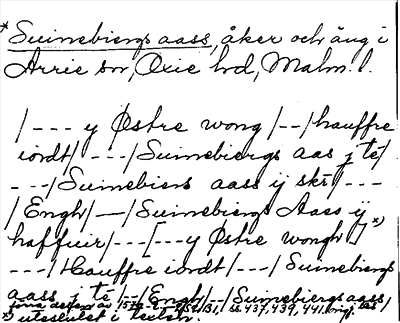 *Suinebiergs aass, åker och äng i
Arrie sn, Oxie hd, Malm. l.
/--- y Østre wong /--/hauffre
iordt/ ---/Suinebiergs aas j té/
---/Suinebiers aass ij skr/---
/Engh/—/Suinebiergs Aass ij
haffuir/---[---y Østre wongh]*)
---/Hauffre iordt/---/Suinebiergs
aass j té/--/Engh/--/Suinebiergs aass/
*) uteslutet i texten.